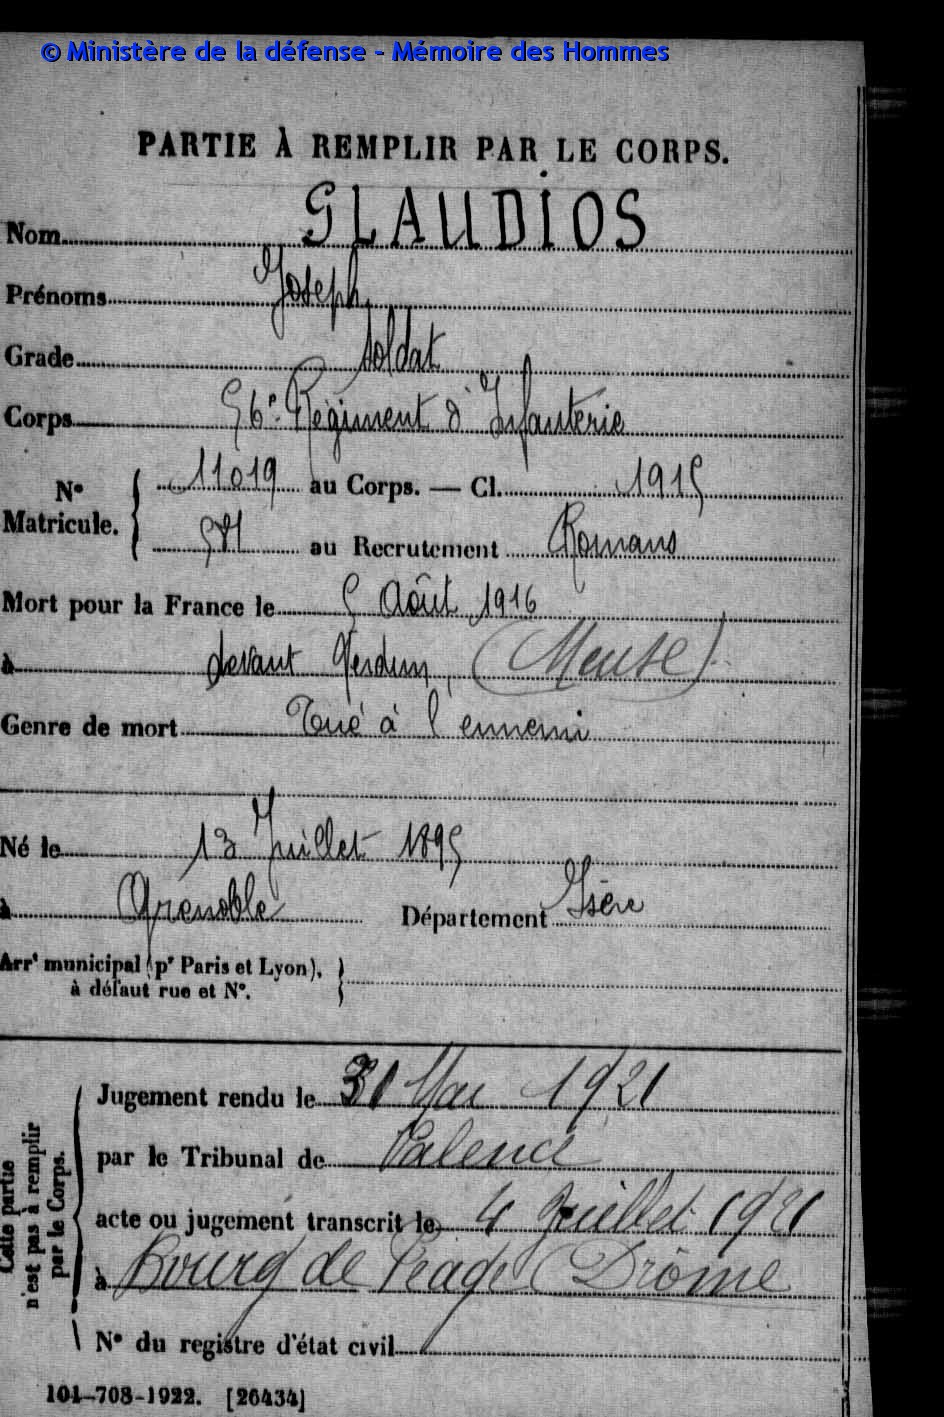 © Ministère de la défense - Mémoire des Hommes
PARTIE À REMPLIR PAR LE CORPS.
Nom GLAUDIOS
Prénoms Joseph
Grade soldat
Corps 56e Régiment d'Infanterie
N° Matricule. 11019 au Corps. — Cl. 1915
au Recrutement Romans
Mort pour la France le 5 Août 1916
à devant Verdun, (Meuse)
Genre de mort Tué à l'ennemi
Né le 13 Juillet 1895
à Grenoble Département Isère
Arrt municipal (pr Paris et Lyon),
à défaut rue et N°.
Cette partie
n'est pas à remplir
par le Corps.
Jugement rendu le 31 Mai 1921
par le Tribunal de Valence
acte ou jugement transcrit le 4 Juillet 1921
à Bourg de Péage (Drôme
N° du registre d'état civil
101-708-1922. [26434]